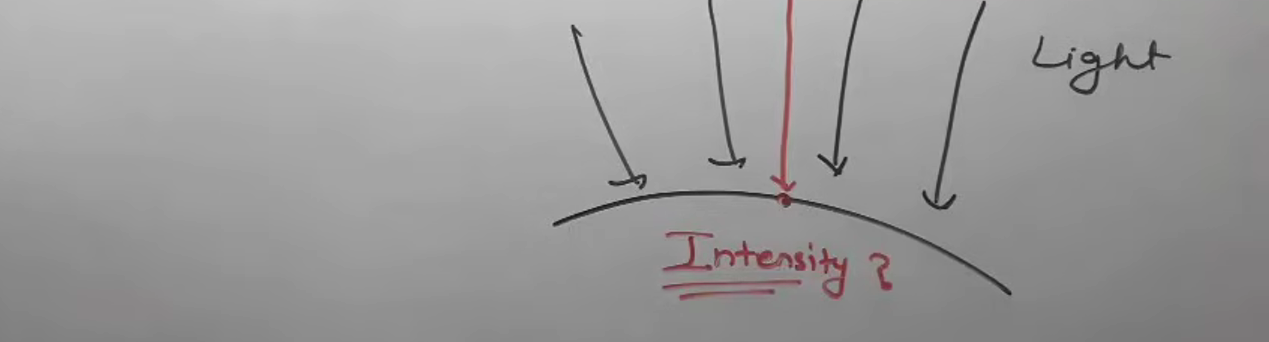 Light
Intensity ?